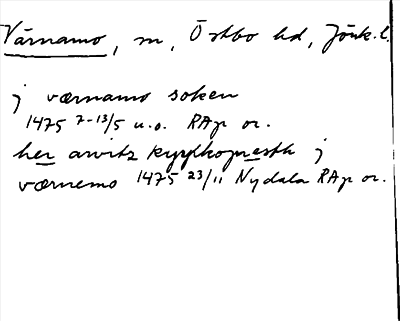 Värnamo, sn, Östbo hd, Jönk. l.
j værnamo soken
1475 7-13/5 u.o. RAp or.
her arvitz kyrkopresth j
værnemo 1475 23/11 Nydala RAp or.